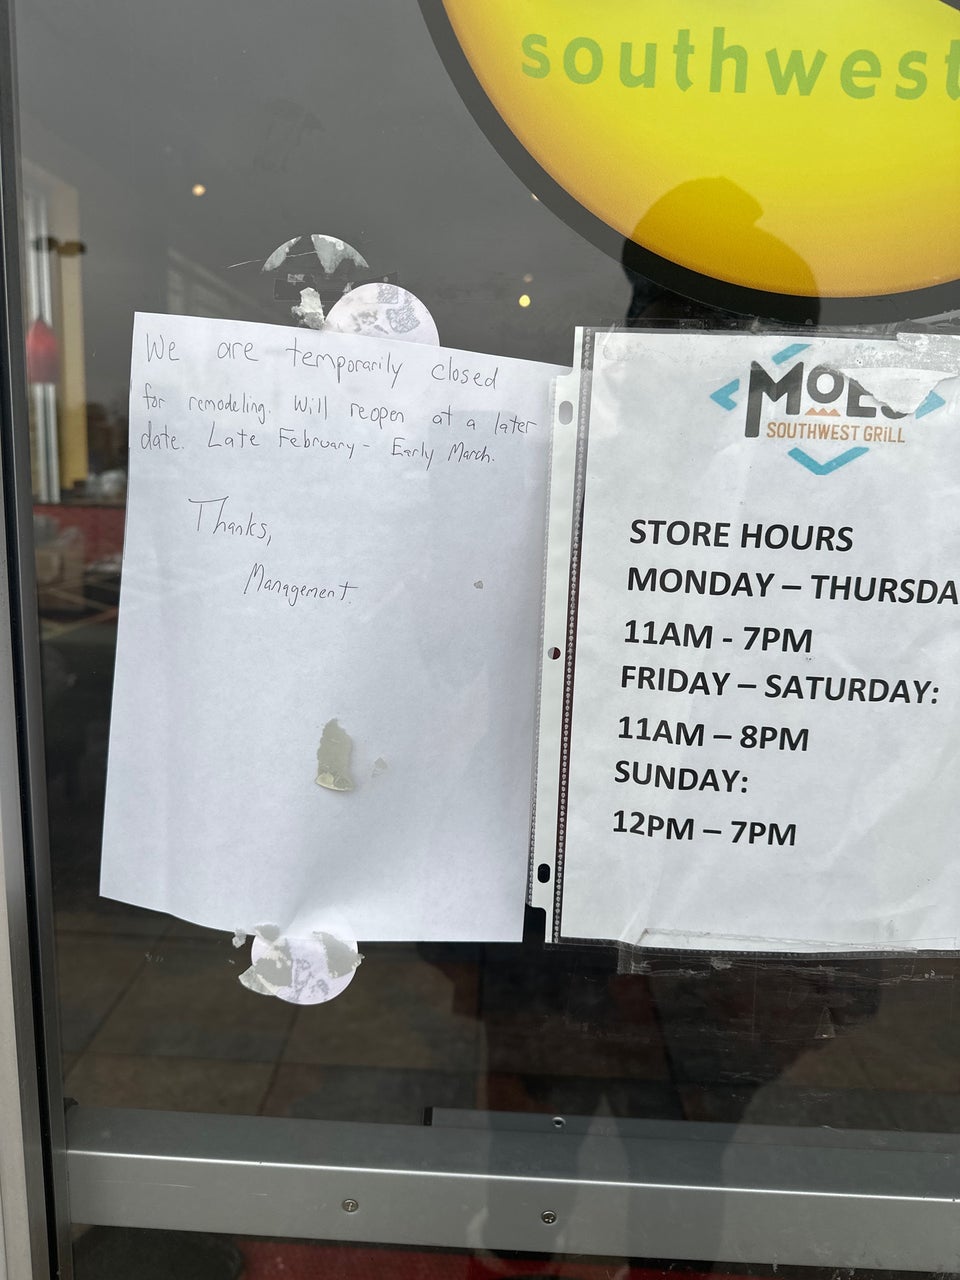 southwest
We are temporarily closed
for remodeling. Will reopen at a later
date. Late February - Early March.
Thanks,
Management.
MOE
SOUTHWEST GRILL
STORE HOURS
MONDAY – THURSDA
11AM - 7PM
FRIDAY – SATURDAY:
11AM – 8PM
SUNDAY:
12PM – 7PM